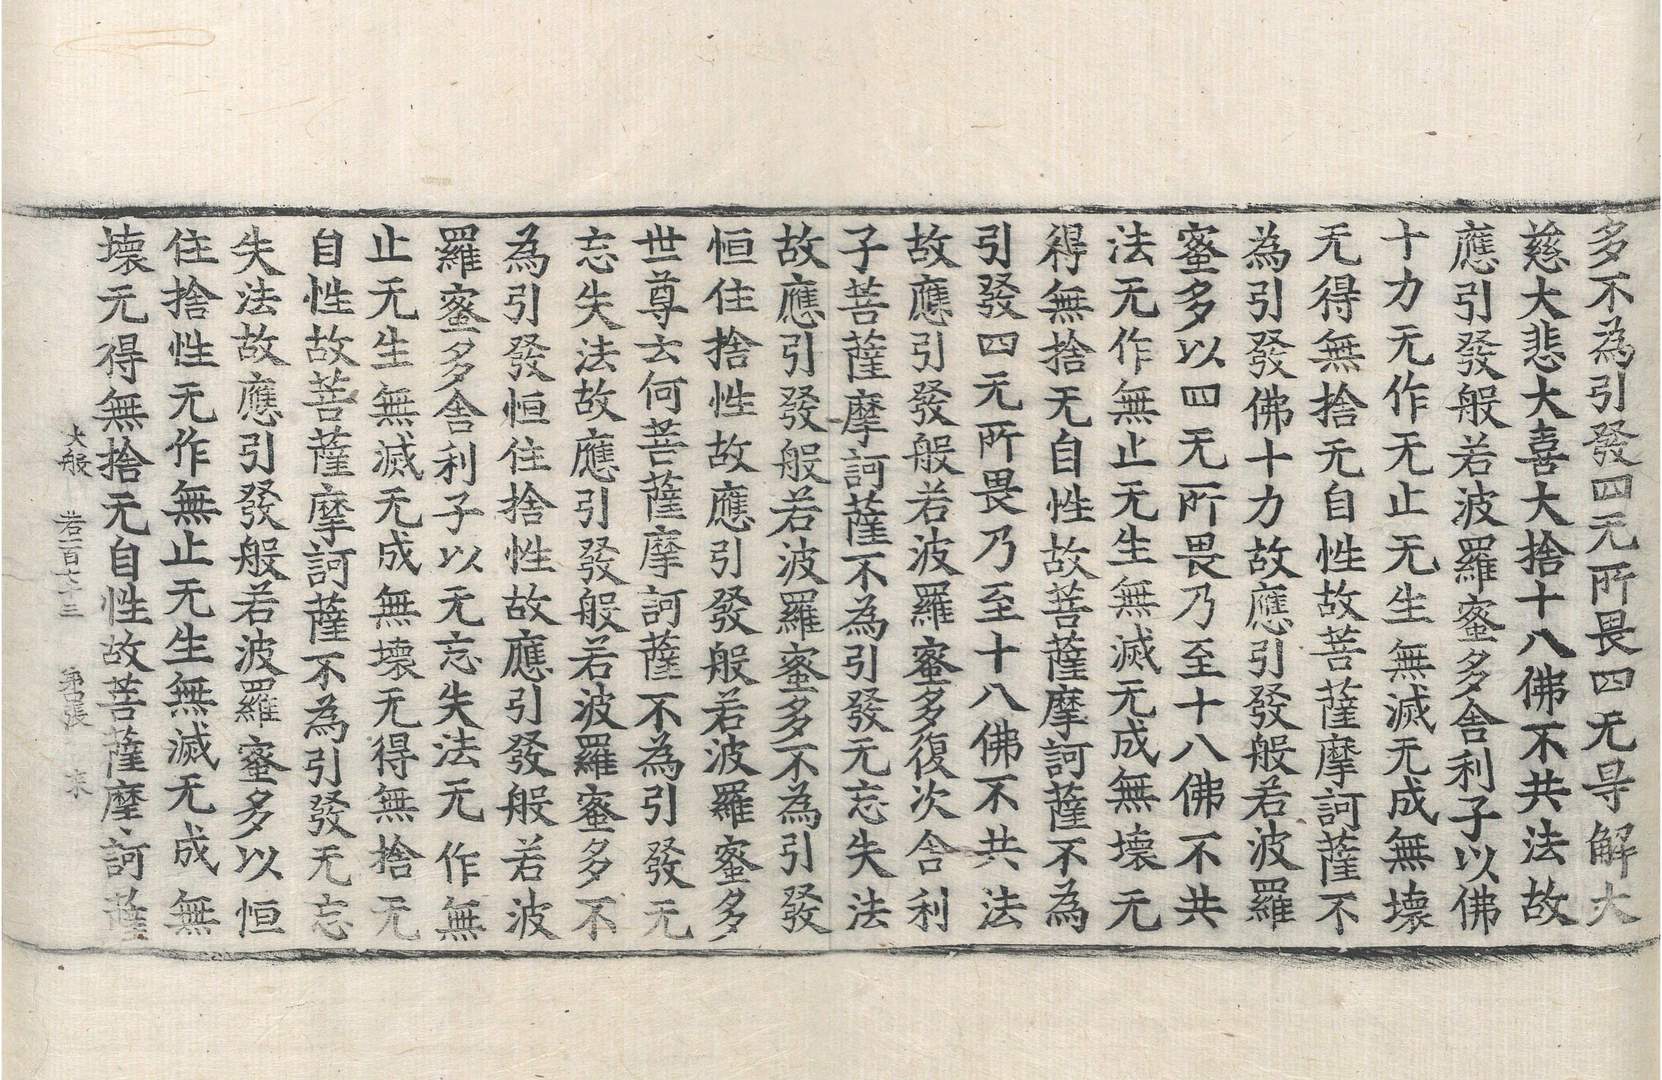 多不為引發四无所畏四无㝵解大
慈大悲大喜大捨十八佛不共法故
應引發般若波羅蜜多舍利子以佛
十力无作无止无生無滅无成無壞
无得無捨无自性故菩薩摩訶薩不
為引發佛十力故應引發般若波羅
蜜多以四无所畏乃至十八佛不共
法无作無止无生無滅无成無壞无
得無捨无自性故菩薩摩訶薩不為
引發四无所畏乃至十八佛不共法
故應引發般若波羅蜜多復次舍利
子菩薩摩訶薩不為引發无忘失法
故應引發般若波羅蜜多不為引發
恒住捨性故應引發般若波羅蜜多
世尊云何菩薩摩訶薩不為引發无
忘失法故應引發般若波羅蜜多不
為引發恒住捨性故應引發般若波
羅蜜多舍利子以无忘失法无作無
止无生無滅无成無壞无得無捨无
自性故菩薩摩訶薩不為引發无忘
失法故應引發般若波羅蜜多以恒
住捨性无作無止无生無滅无成無
壞无得無捨无自性故菩薩摩訶薩
大般 若一百七十三 第四張